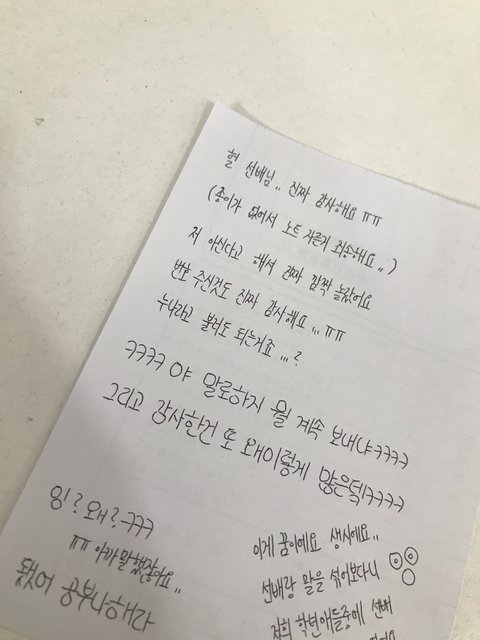 헐 선배님.. 진짜 감사해요 ㅠㅠ
(종이가 없어서 노트 자른거 죄송해요..)
저 아신다고 해서 진짜 깜짝 놀랐어요
번호 주신것도 진짜 감사해요... ㅠㅠ
누나라고 불러도 되는거죠...?
ㅋㅋㅋㅋ 야 말로하지 뭘 계속 보내냐ㅋㅋㅋㅋ
그리고 감사한건 또 왜이렇게 많은데ㅋㅋㅋㅋ
잉? 왜? ㅋㅋㅋ
ㅠㅠ 아까 말했잖아요..
됐어 공부나해라
이게 꿈이에요 생시에요..
선배랑 말을 섞어보다니
저희 학년애들중에 선배